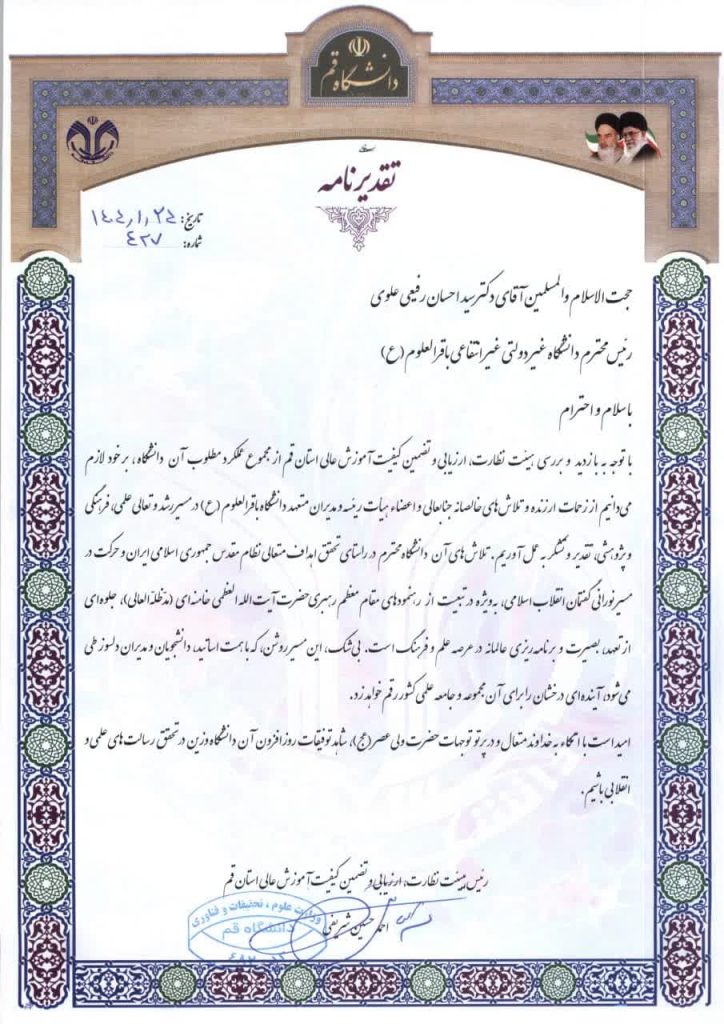 دانشگاه قم
تقدیرنامه
تاریخ:
شماره: ٤٢٧
حجت الاسلام والمسلمین آقای دکتر سید احسان رفیعی علوی
رئیس محترم دانشگاه غیر دولتی غیر انتفاعی باقرالعلوم (ع)
با سلام و احترام
با توجه به بازدید و بررسی هیئت نظارت، ارزیابی و تضمین کیفیت آموزش عالی استان قم از مجموع عملکرد مطلوب آن دانشگاه، بر خود لازم
می‌دانیم از زحمات ارزنده و تلاش‌های خالصانه جنابعالی و اعضاء هیأت رئیسه و مدیران متعهد دانشگاه باقرالعلوم (ع) در مسیر رشد و تعالی علمی، فرهنگی
و پژوهشی، تقدیر و تشکر به عمل آوریم. تلاش‌های آن دانشگاه محترم در راستای تحقق اهداف متعالی نظام مقدس جمهوری اسلامی ایران و حرکت در
مسیر نورانی گفتمان انقلاب اسلامی، به‌ویژه در تبعیت از رهنمودهای مقام معظم رهبری حضرت آیت الله العظمی خامنه‌ای (مدظله‌العالی)، جلوه‌ای
از تعهد، بصیرت و برنامه‌ریزی عالمانه در عرصه علم و فرهنگ است. بی‌شک، این مسیر روشن، که با همت اساتید، دانشجویان و مدیران دلسوز طی
می‌شود، آینده‌ای درخشان را برای آن مجموعه و جامعه علمی کشور رقم خواهد زد.
امید است با اتکاء به خداوند متعال و در پرتو توجهات حضرت ولی عصر (عج)، شاهد توفیقات روز افزون آن دانشگاه وزین در تحقق رسالت‌های علمی و
انقلابی باشیم.
رئیس هیئت نظارت، ارزیابی و تضمین کیفیت آموزش عالی استان قم
احمد حسین شریفی
وزارت علوم، تحقیقات و فناوری
دانشگاه قم